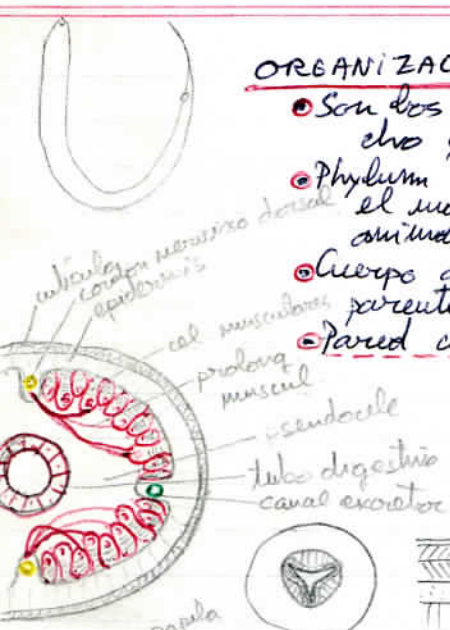 ORGANIZAC
Son los
cho y
Phylum
el mu
anima
Cuerpo a
parent
Pared c
cutícula
cordon nervioso dorsal
epidermis
cel musculares
prolong
muscul
pseudocele
tubo digestivo
canal excretor
papula